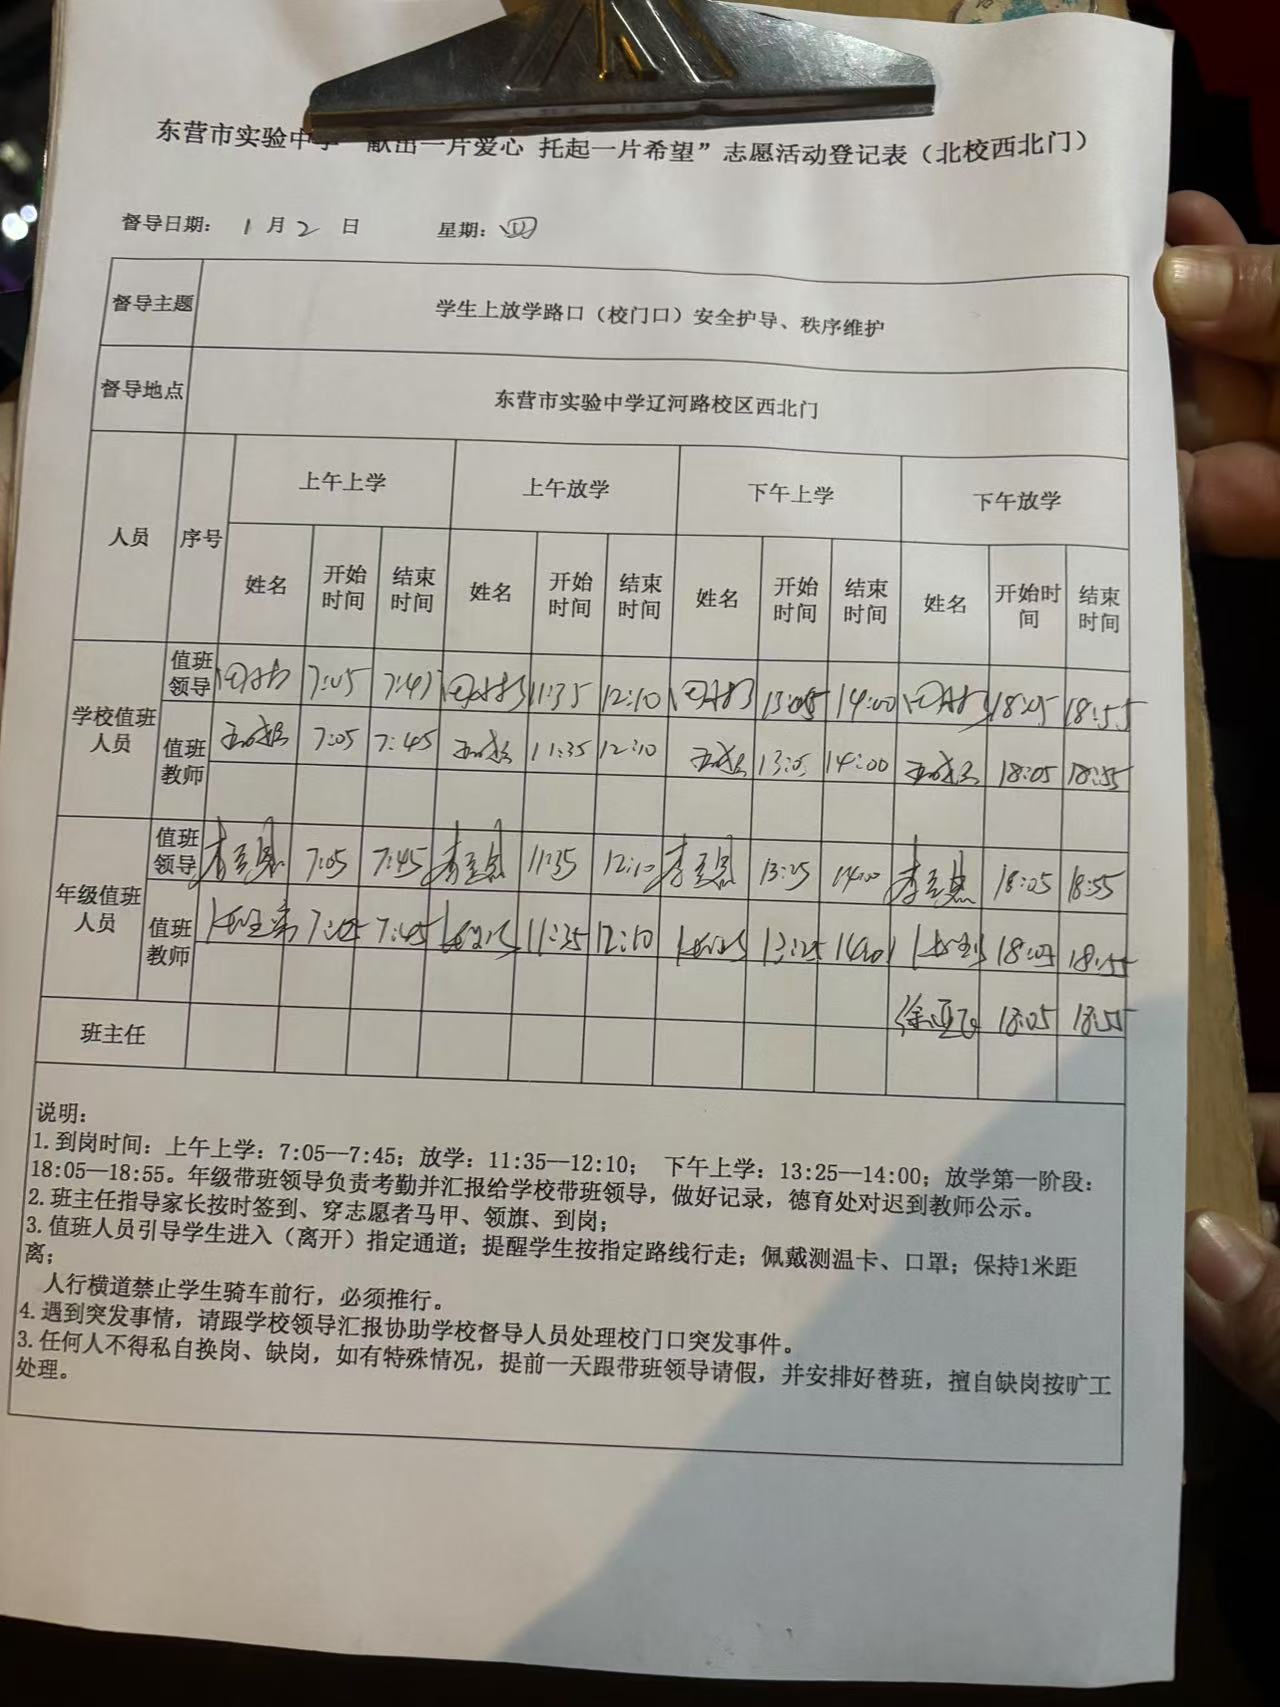 东营市实验中学“献出一片爱心 托起一片希望”志愿活动登记表（北校西北门）
督导日期： 1 月 2 日 星期：四
督导主题 学生上放学路口（校门口）安全护导、秩序维护
督导地点 东营市实验中学辽河路校区西北门
人员 序号 上午上学 上午放学 下午上学 下午放学
姓名 开始时间 结束时间 姓名 开始时间 结束时间 姓名 开始时间 结束时间 姓名 开始时间 结束时间
学校值班人员 值班领导 7:05 7:45 11:35 12:10 14:00 18:05 18:55
值班教师 7:05 7:45 11:35 12:10 13:05 14:00 18:05 18:55
年级值班人员 值班领导 7:05 7:45 11:35 12:10 13:25 14:00 18:05 18:55
值班教师 7:05 7:45 11:35 12:10 13:25 14:00 18:05 18:55
徐亚飞 18:05 18:55
班主任
说明：
1.到岗时间：上午上学：7:05—7:45；放学：11:35—12:10； 下午上学：13:25—14:00；放学第一阶段：
18:05—18:55。年级带班领导负责考勤并汇报给学校带班领导，做好记录，德育处对迟到教师公示。
2.班主任指导家长按时签到、穿志愿者马甲、领旗、到岗；
3.值班人员引导学生进入（离开）指定通道；提醒学生按指定路线行走；佩戴测温卡、口罩；保持1米距
离；
人行横道禁止学生骑车前行，必须推行。
4.遇到突发事情，请跟学校领导汇报协助学校督导人员处理校门口突发事件。
3.任何人不得私自换岗、缺岗，如有特殊情况，提前一天跟带班领导请假，并安排好替班，擅自缺岗按旷工
处理。